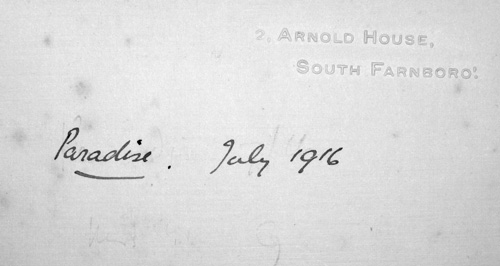 2, ARNOLD HOUSE,
SOUTH FARNBORO'.
Paradise. July 1916